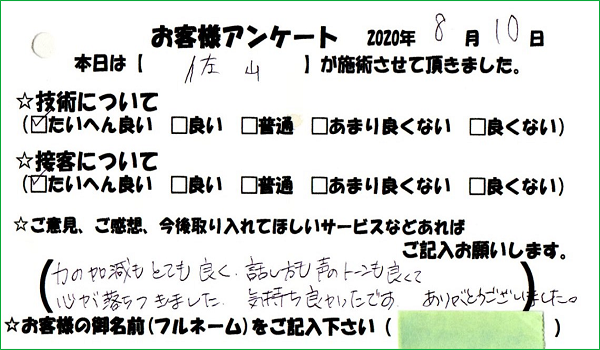 お客様アンケート 2020年 8 月 10 日
本日は【 佐山 】が施術させて頂きました。
☆技術について
(☑たいへん良い □良い □普通 □あまり良くない □良くない)
☆接客について
(☑たいへん良い □良い □普通 □あまり良くない □良くない)
☆ご意見、ご感想、今後取り入れてほしいサービスなどあれば
ご記入お願いします。
(力の加減もとても良く、話し方も声のトーンも良くて
心が落ちつきました。気持ち良かったです。ありがとうございました。)
☆お客様の御名前(フルネーム)をご記入下さい( )